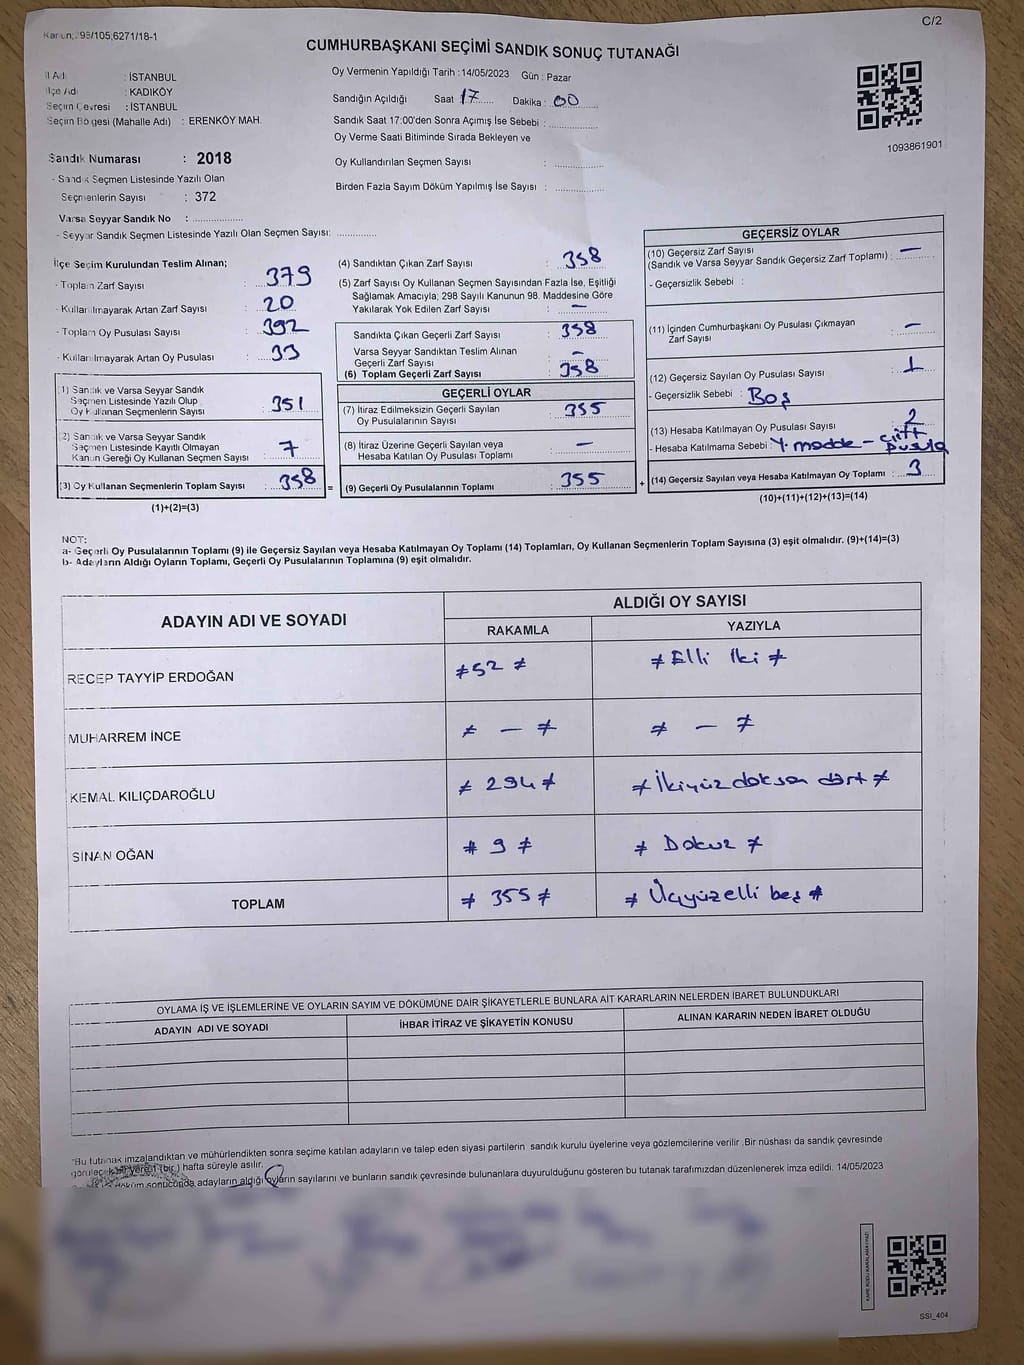 C/2
Kanun, 298/105,6271/18-1
CUMHURBAŞKANI SEÇİMİ SANDIK SONUÇ TUTANAĞI
İl Adı : İSTANBUL
İlçe Adı : KADIKÖY
Seçim Çevresi : İSTANBUL
Seçim Bölgesi (Mahalle Adı) : ERENKÖY MAH.
Oy Vermenin Yapıldığı Tarih : 14/05/2023 Gün : Pazar
Sandığın Açıldığı Saat 17 Dakika : 00
Sandık Saat 17:00'den Sonra Açımış İse Sebebi :
Oy Verme Saati Bitiminde Sırada Bekleyen ve
Oy Kullandırılan Seçmen Sayısı :
Birden Fazla Sayım Döküm Yapılmış İse Sayısı :
1093861901
Sandık Numarası : 2018
- Sandık Seçmen Listesinde Yazılı Olan
Seçmenlerin Sayısı : 372
Varsa Seyyar Sandık No :
- Seyyar Sandık Seçmen Listesinde Yazılı Olan Seçmen Sayısı:
İlçe Seçim Kurulundan Teslim Alınan;
- Toplam Zarf Sayısı : 379
- Kullanılmayarak Artan Zarf Sayısı : 20
- Toplam Oy Pusulası Sayısı : 392
- Kullanılmayarak Artan Oy Pusulası : 33
(1) Sandık ve Varsa Seyyar Sandık
Seçmen Listesinde Yazılı Olup
Oy Kullanan Seçmenlerin Sayısı : 351
(2) Sandık ve Varsa Seyyar Sandık
Seçmen Listesinde Kayıtlı Olmayan
Kanun Gereği Oy Kullanan Seçmen Sayısı : 7
(3) Oy Kullanan Seçmenlerin Toplam Sayısı : 358 =
(1)+(2)=(3)
(4) Sandıktan Çıkan Zarf Sayısı : 358
(5) Zarf Sayısı Oy Kullanan Seçmen Sayısından Fazla İse, Eşitliği
Sağlamak Amacıyla; 298 Sayılı Kanunun 98. Maddesine Göre
Yakılarak Yok Edilen Zarf Sayısı : —
Sandıkta Çıkan Geçerli Zarf Sayısı : 358
Varsa Seyyar Sandıktan Teslim Alınan
Geçerli Zarf Sayısı : —
(6) Toplam Geçerli Zarf Sayısı : 358
GEÇERLİ OYLAR
(7) İtiraz Edilmeksizin Geçerli Sayılan
Oy Pusulalarının Sayısı : 355
(8) İtiraz Üzerine Geçerli Sayılan veya
Hesaba Katılan Oy Pusulası Toplamı : —
(9) Geçerli Oy Pusulalarının Toplamı : 355 +
GEÇERSİZ OYLAR
(10) Geçersiz Zarf Sayısı
(Sandık ve Varsa Seyyar Sandık Geçersiz Zarf Toplamı) : —
- Geçersizlik Sebebi :
(11) İçinden Cumhurbaşkanı Oy Pusulası Çıkmayan
Zarf Sayısı : —
(12) Geçersiz Sayılan Oy Pusulası Sayısı : 1
- Geçersizlik Sebebi : Boş
(13) Hesaba Katılmayan Oy Pusulası Sayısı : 2
- Hesaba Katılmama Sebebi : Y. madde - çift pusula
(14) Geçersiz Sayılan veya Hesaba Katılmayan Oy Toplamı : 3
(10)+(11)+(12)+(13)=(14)
NOT:
a- Geçerli Oy Pusulalarının Toplamı (9) ile Geçersiz Sayılan veya Hesaba Katılmayan Oy Toplamı (14) Toplamları, Oy Kullanan Seçmenlerin Toplam Sayısına (3) eşit olmalıdır. (9)+(14)=(3)
b- Adayların Aldığı Oyların Toplamı, Geçerli Oy Pusulalarının Toplamına (9) eşit olmalıdır.
ADAYIN ADI VE SOYADI ALDIĞI OY SAYISI
RAKAMLA YAZIYLA
RECEP TAYYİP ERDOĞAN ≠ 52 ≠ ≠ Elli İki ≠
MUHARREM İNCE ≠ — ≠ ≠ — ≠
KEMAL KILIÇDAROĞLU ≠ 294 ≠ ≠ İkiyüz doksan dört ≠
SİNAN OĞAN ≠ 9 ≠ ≠ Dokuz ≠
TOPLAM ≠ 355 ≠ ≠ Üçyüzelli beş ≠
OYLAMA İŞ VE İŞLEMLERİNE VE OYLARIN SAYIM VE DÖKÜMÜNE DAİR ŞİKAYETLERLE BUNLARA AİT KARARLARIN NELERDEN İBARET BULUNDUKLARI
ADAYIN ADI VE SOYADI İHBAR İTİRAZ VE ŞİKAYETİN KONUSU ALINAN KARARIN NEDEN İBARET OLDUĞU
*Bu tutanak imzalandıktan ve mühürlendikten sonra seçime katılan adayların ve talep eden siyasi partilerin sandık kurulu üyelerine veya gözlemcilerine verilir .Bir nüshası da sandık çevresinde
görülecek bir yere 1 (bir.) hafta süreyle asılır.
döküm sonucunda adayların aldığı oyların sayılarını ve bunların sandık çevresinde bulunanlara duyurulduğunu gösteren bu tutanak tarafımızdan düzenlenerek imza edildi. 14/05/2023
SSİ_404